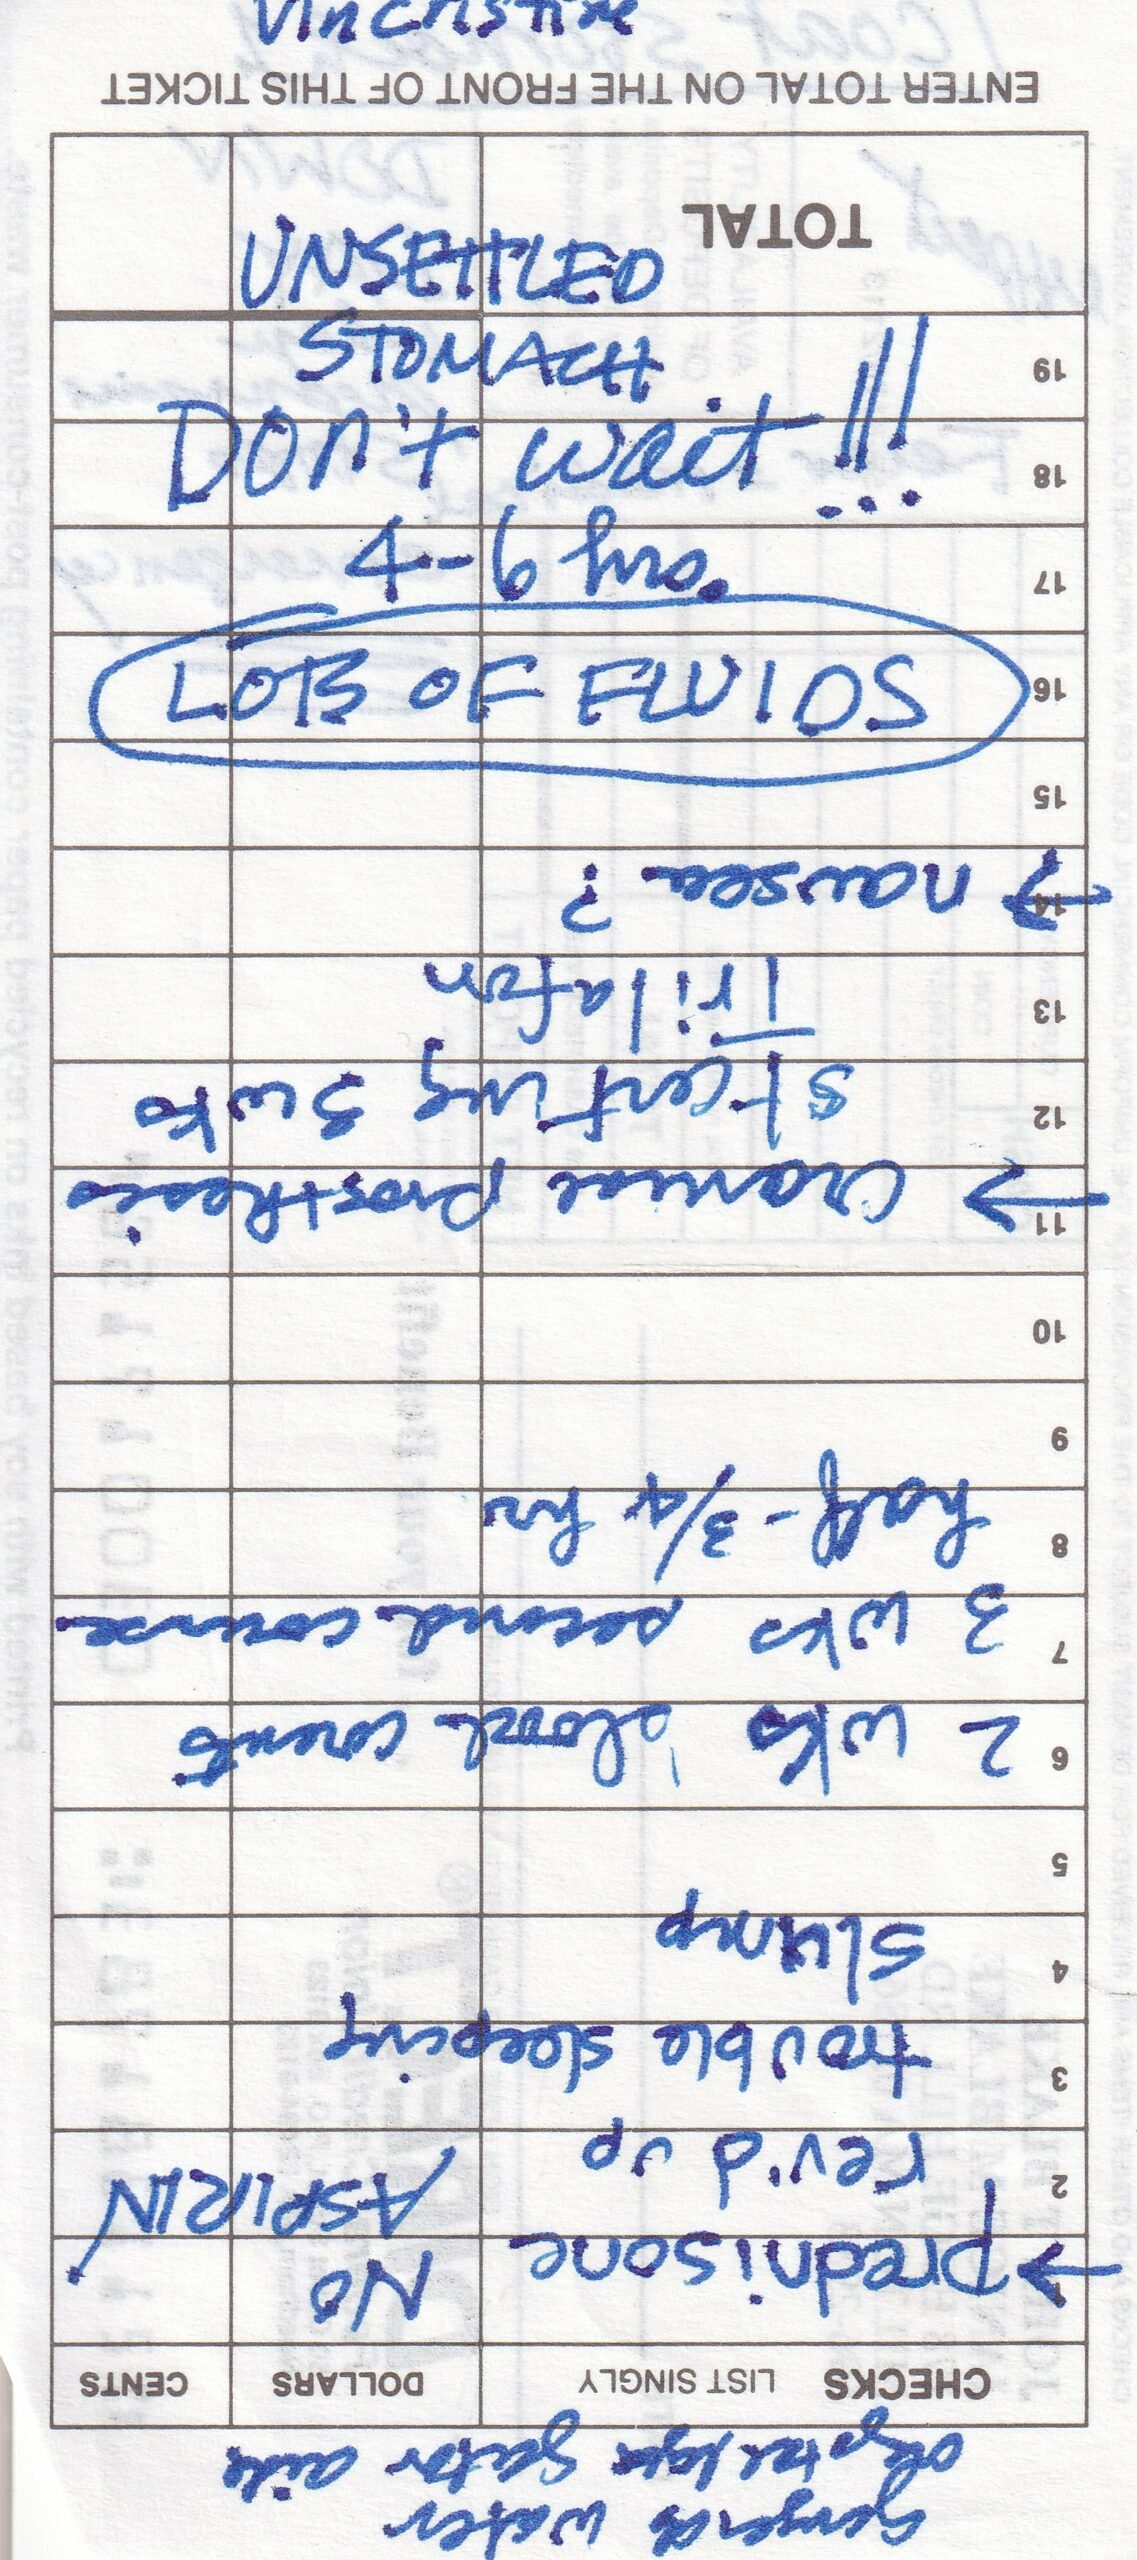 water
Gator aide
CHECKS LIST SINGLY DOLLARS CENTS
1 → Prednisone NO
2 rev'd up ASPIRIN
3 trouble sleeping
4 slump
5
6 2 wks blood counts
7 3 wks second course
8 half - 3/4 hr
9
10
11 → Cranial prosthesis
12 starting 3 wks
13 Trilafon
14 → nausea ?
15
16 LOTS OF FLUIDS
17 9-4
18
19
TOTAL
ENTER TOTAL ON THE FRONT OF THIS TICKET
Vincristine
UNSETTLED
STOMACH
DON't wait !!!